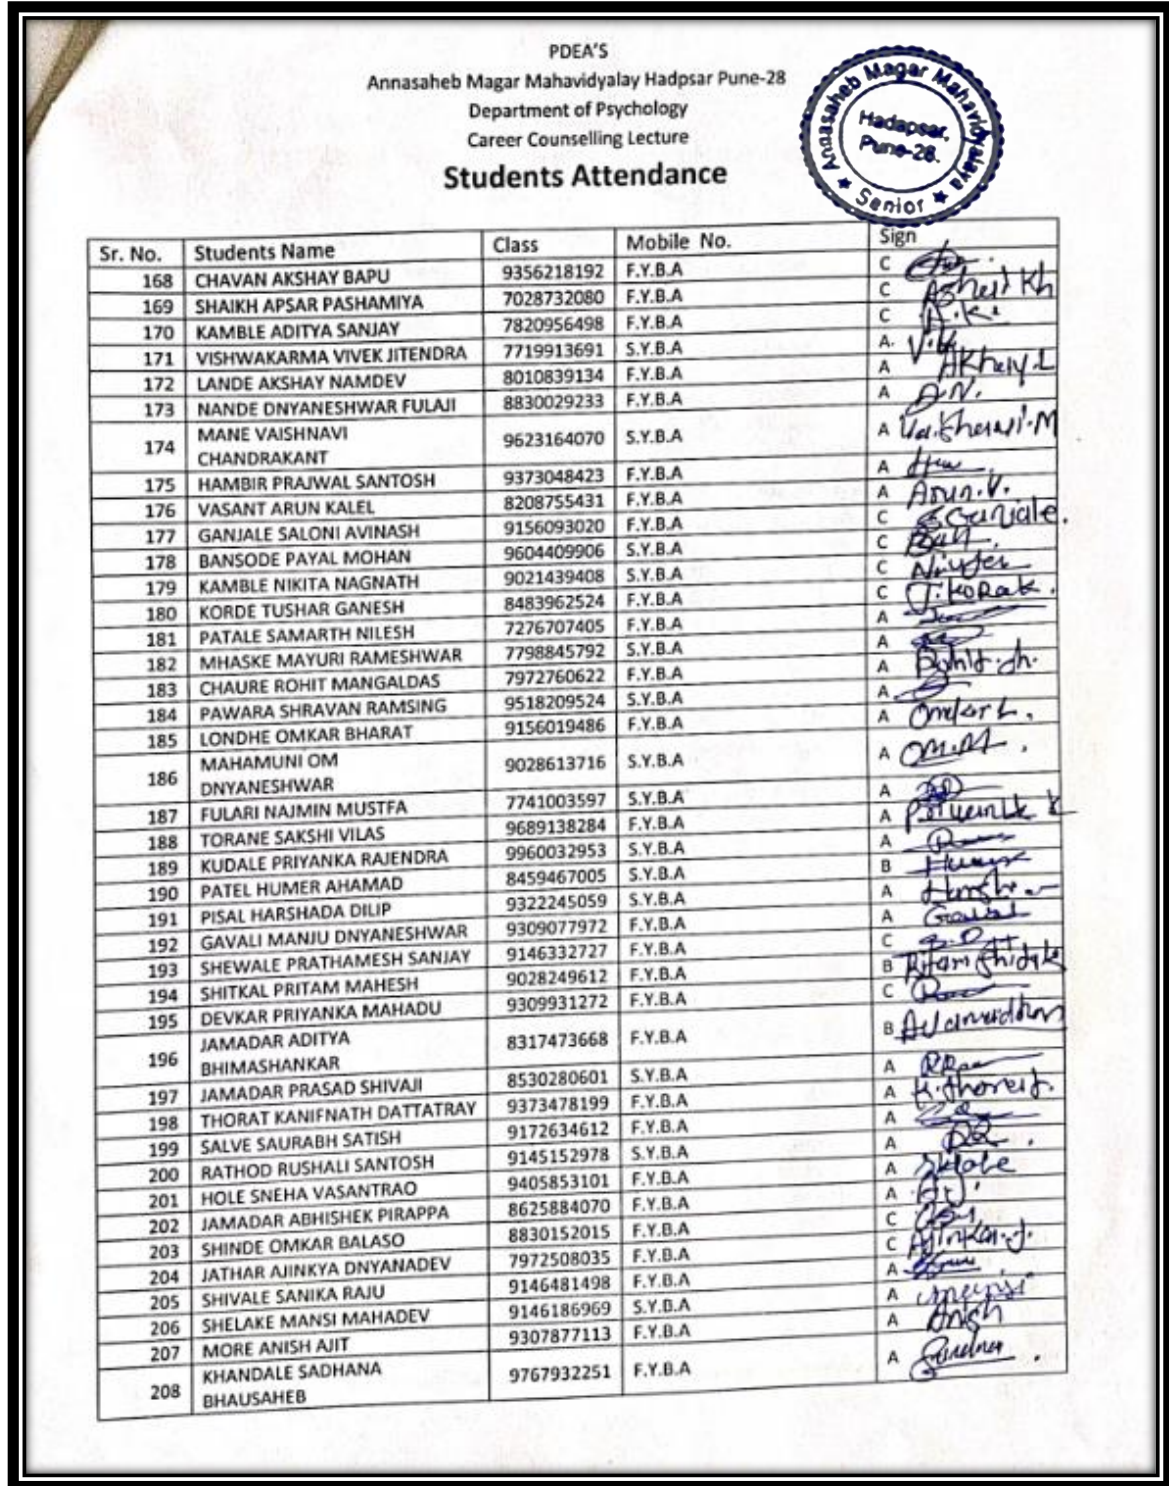 PDEA'S
Annasaheb Magar Mahavidyalay Hadpsar Pune-28
Department of Psychology
Career Counselling Lecture
Students Attendance
Annasaheb Magar Mahavidyalaya
Hadapsar,
Pune-28.
★ Senior ★
Sr. No. Students Name Class Mobile No. Sign
168 CHAVAN AKSHAY BAPU 9356218192 F.Y.B.A C
169 SHAIKH APSAR PASHAMIYA 7028732080 F.Y.B.A C
170 KAMBLE ADITYA SANJAY 7820956498 F.Y.B.A C
171 VISHWAKARMA VIVEK JITENDRA 7719913691 S.Y.B.A A.
172 LANDE AKSHAY NAMDEV 8010839134 F.Y.B.A A
173 NANDE DNYANESHWAR FULAJI 8830029233 F.Y.B.A A D.N.
174 MANE VAISHNAVI
CHANDRAKANT 9623164070 S.Y.B.A A
175 HAMBIR PRAJWAL SANTOSH 9373048423 F.Y.B.A A
176 VASANT ARUN KALEL 8208755431 F.Y.B.A A Arun.V.
177 GANJALE SALONI AVINASH 9156093020 F.Y.B.A C SGanjale.
178 BANSODE PAYAL MOHAN 9604409906 S.Y.B.A C
179 KAMBLE NIKITA NAGNATH 9021439408 S.Y.B.A C
180 KORDE TUSHAR GANESH 8483962524 F.Y.B.A C
181 PATALE SAMARTH NILESH 7276707405 F.Y.B.A A
182 MHASKE MAYURI RAMESHWAR 7798845792 S.Y.B.A A
183 CHAURE ROHIT MANGALDAS 7972760622 F.Y.B.A A Rohit.ch.
184 PAWARA SHRAVAN RAMSING 9518209524 S.Y.B.A A
185 LONDHE OMKAR BHARAT 9156019486 F.Y.B.A A Omkar L.
186 MAHAMUNI OM
DNYANESHWAR 9028613716 S.Y.B.A A O.M.M.
187 FULARI NAJMIN MUSTFA 7741003597 S.Y.B.A A
188 TORANE SAKSHI VILAS 9689138284 F.Y.B.A A
189 KUDALE PRIYANKA RAJENDRA 9960032953 S.Y.B.A A
190 PATEL HUMER AHAMAD 8459467005 S.Y.B.A B
191 PISAL HARSHADA DILIP 9322245059 S.Y.B.A A
192 GAVALI MANJU DNYANESHWAR 9309077972 F.Y.B.A A
193 SHEWALE PRATHAMESH SANJAY 9146332727 F.Y.B.A C
194 SHITKAL PRITAM MAHESH 9028249612 F.Y.B.A B
195 DEVKAR PRIYANKA MAHADU 9309931272 F.Y.B.A C
196 JAMADAR ADITYA
BHIMASHANKAR 8317473668 F.Y.B.A B
197 JAMADAR PRASAD SHIVAJI 8530280601 S.Y.B.A A
198 THORAT KANIFNATH DATTATRAY 9373478199 F.Y.B.A A
199 SALVE SAURABH SATISH 9172634612 F.Y.B.A A
200 RATHOD RUSHALI SANTOSH 9145152978 S.Y.B.A A
201 HOLE SNEHA VASANTRAO 9405853101 F.Y.B.A A
202 JAMADAR ABHISHEK PIRAPPA 8625884070 F.Y.B.A A
203 SHINDE OMKAR BALASO 8830152015 F.Y.B.A C
204 JATHAR AJINKYA DNYANADEV 7972508035 F.Y.B.A C
205 SHIVALE SANIKA RAJU 9146481498 F.Y.B.A A
206 SHELAKE MANSI MAHADEV 9146186969 S.Y.B.A A
207 MORE ANISH AJIT 9307877113 F.Y.B.A A Anish
208 KHANDALE SADHANA
BHAUSAHEB 9767932251 F.Y.B.A A